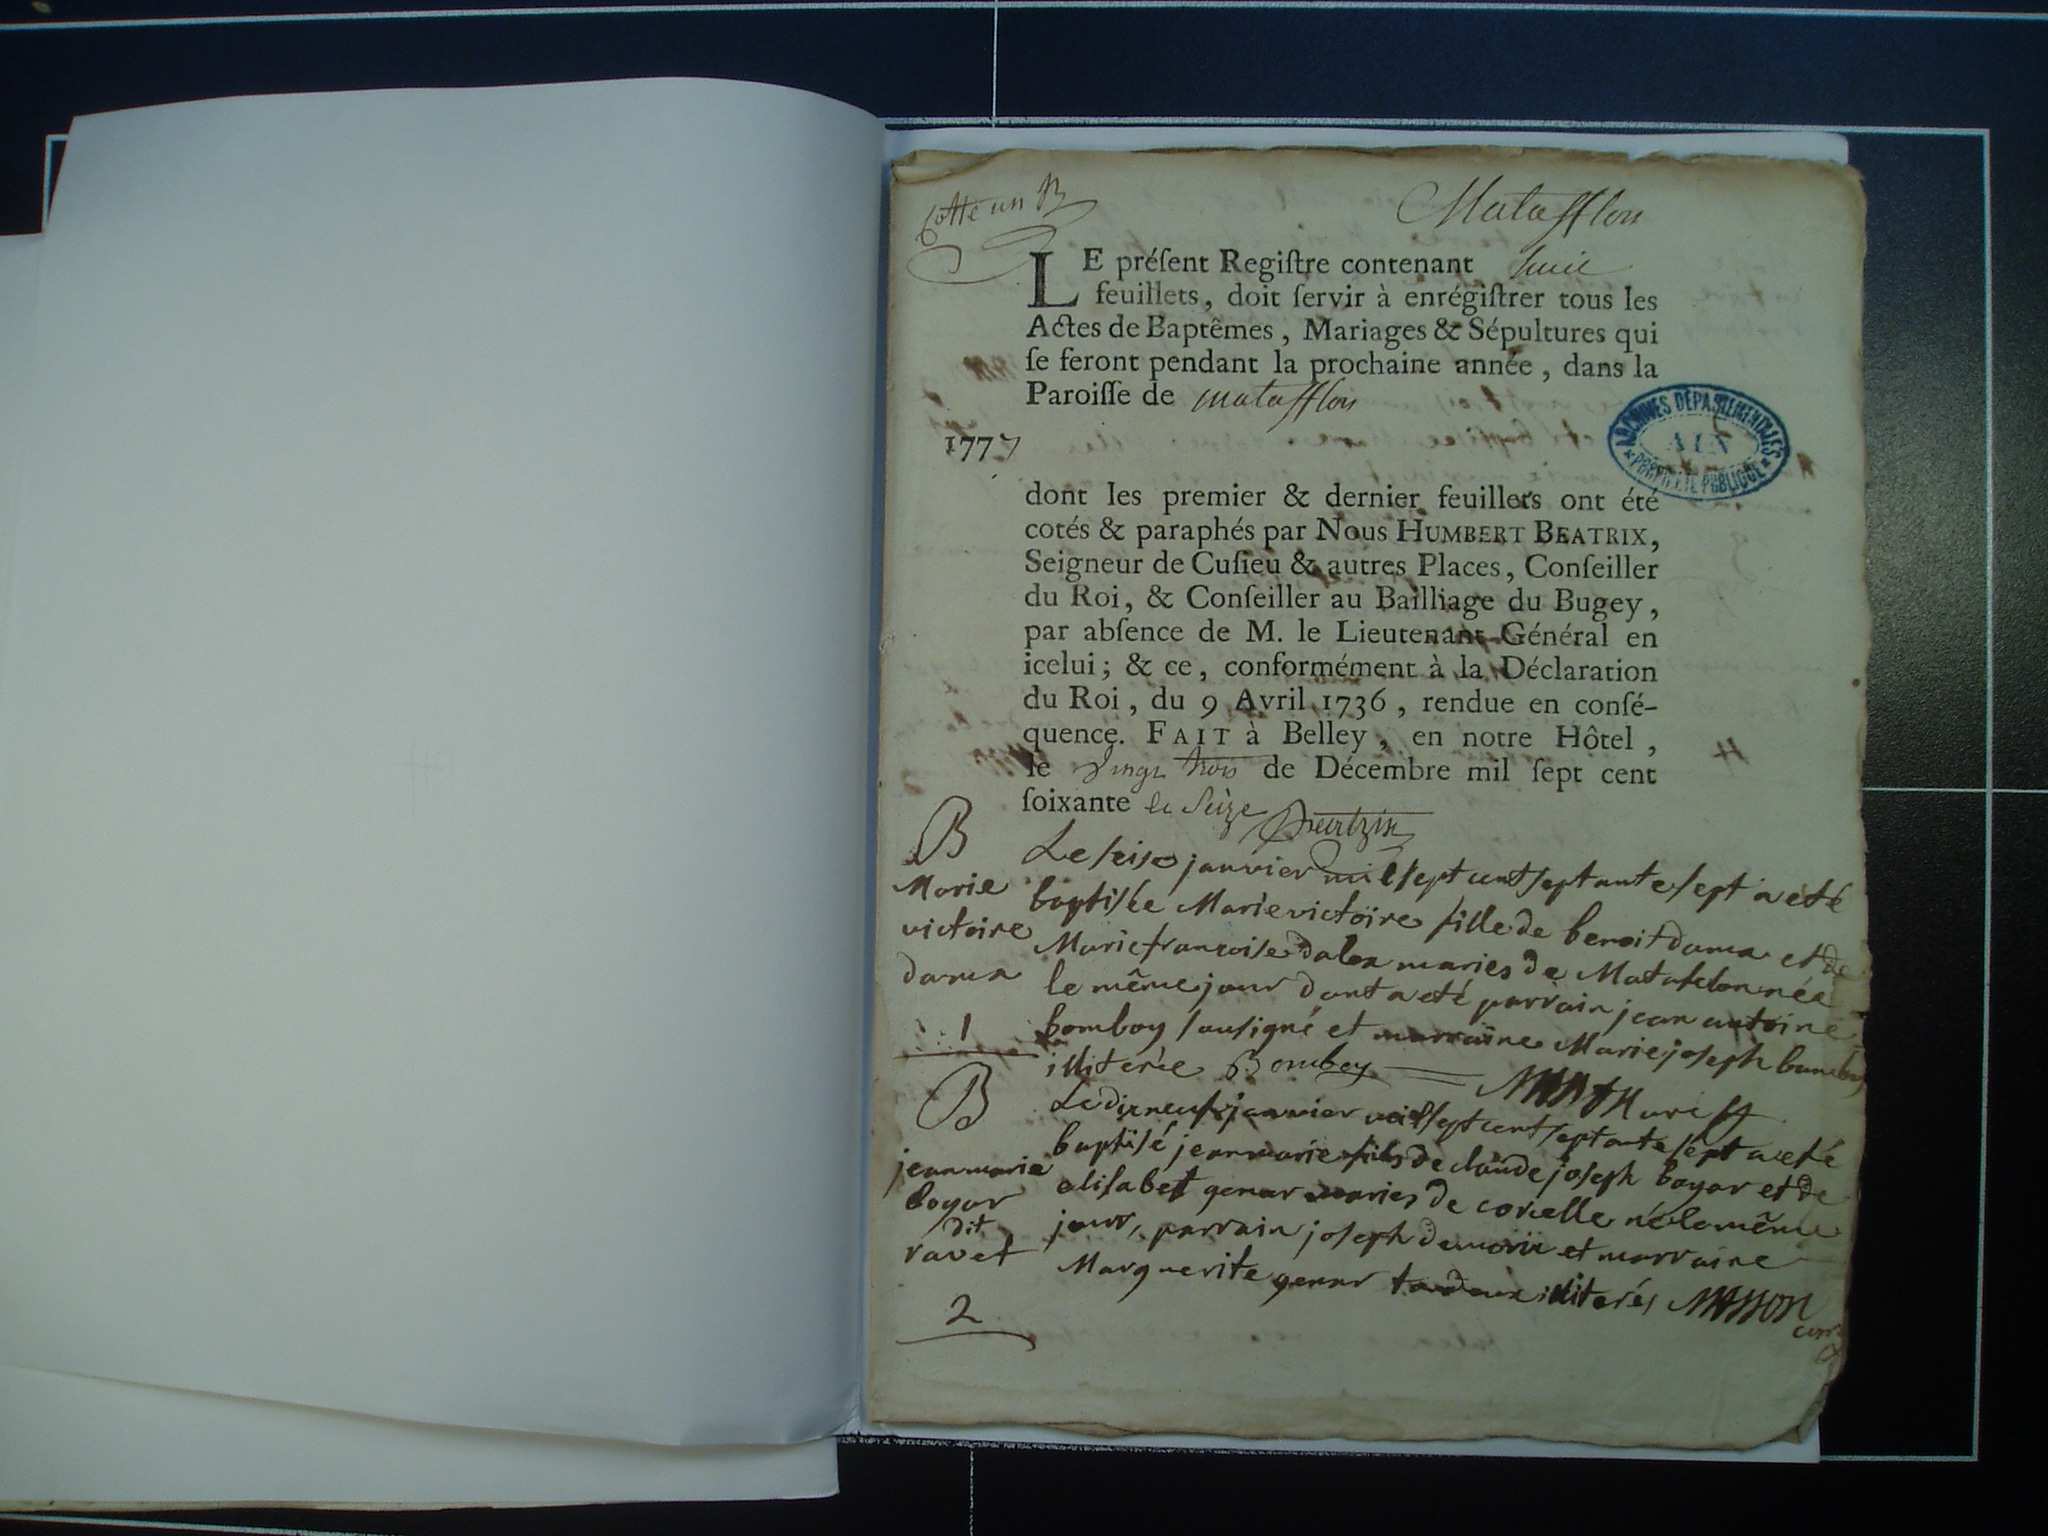 Cotte un B
Matafflon
LE préſent Regiſtre contenant huit
feuillets, doit ſervir à enrégiſtrer tous les
Actes de Baptêmes, Mariages & Sépultures qui
ſe feront pendant la prochaine année, dans la
Paroiſſe de matafflon
1777
ARCHIVES DÉPARTEMENTALES
AIN
PROPRIÉTÉ PUBLIQUE
dont les premier & dernier feuillets ont été
cotés & paraphés par Nous HUMBERT BEATRIX,
Seigneur de Cuſieu & autres Places, Conſeiller
du Roi, & Conſeiller au Bailliage du Bugey,
par abſence de M. le Lieutenant Général en
icelui; & ce, conformément à la Déclaration
du Roi, du 9 Avril 1736, rendue en conſé-
quence. FAIT à Belley, en notre Hôtel,
le vingt trois de Décembre mil ſept cent
ſoixante et seize
B
Marie
victoire
dama
1
Le seise janvier mil sept cent septante sept a eté
baptisée Marie victoire fille de benoit dama et de
Marie francoise dalon maries de Matafelon née
le même jour dont a eté parrain jean antoine
bomboy sousigné et marraine Marie joseph bomboy
illiterée Bomboy
B
jean marie
boyar
dit
ravet
2
Le dixneuf janvier mil sept cent septante sept a eté
baptisé jean marie fils de claude joseph boyar et de
elisabet genar maries de corcelle né le même
jour, parrain joseph et marraine
Marguerite genar tous deux illiterés MASSON
curé